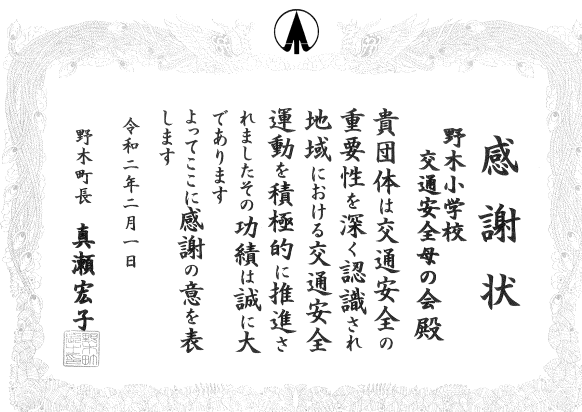 感謝状
野木小学校
交通安全母の会 殿
貴団体は交通安全の
重要性を深く認識され
地域における交通安全
運動を積極的に推進さ
れましたその功績は誠に大
であります
よってここに感謝の意を表
します
令和二年二月一日
野木町長 真瀬宏子